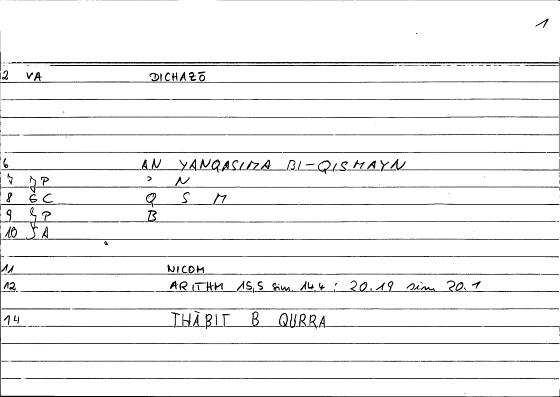 1
2 VA DICHAZŌ
6 AN YANQASIMA BI-QISMAYN
7 JP ʾ N
8 GC Q S M
9 JP B
10 SA
11 NICOM
12 ARITHM 15,5 sim. 14.4 : 20.19 sim 20.1
14 THĀBIT B QURRA